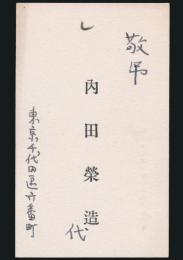 敬弔
内田榮造
代
東京千代田区六番町